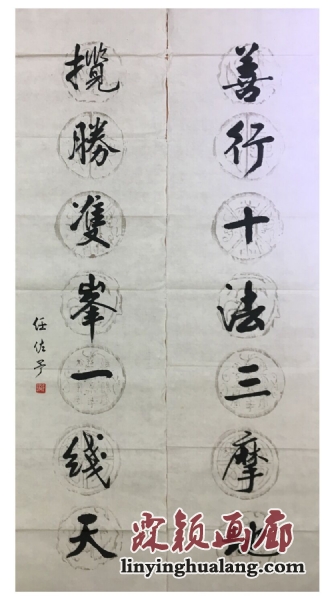 善行十法三摩地
攬勝雙峯一綫天
任佐予
霖颖画廊
linyinghualang.com